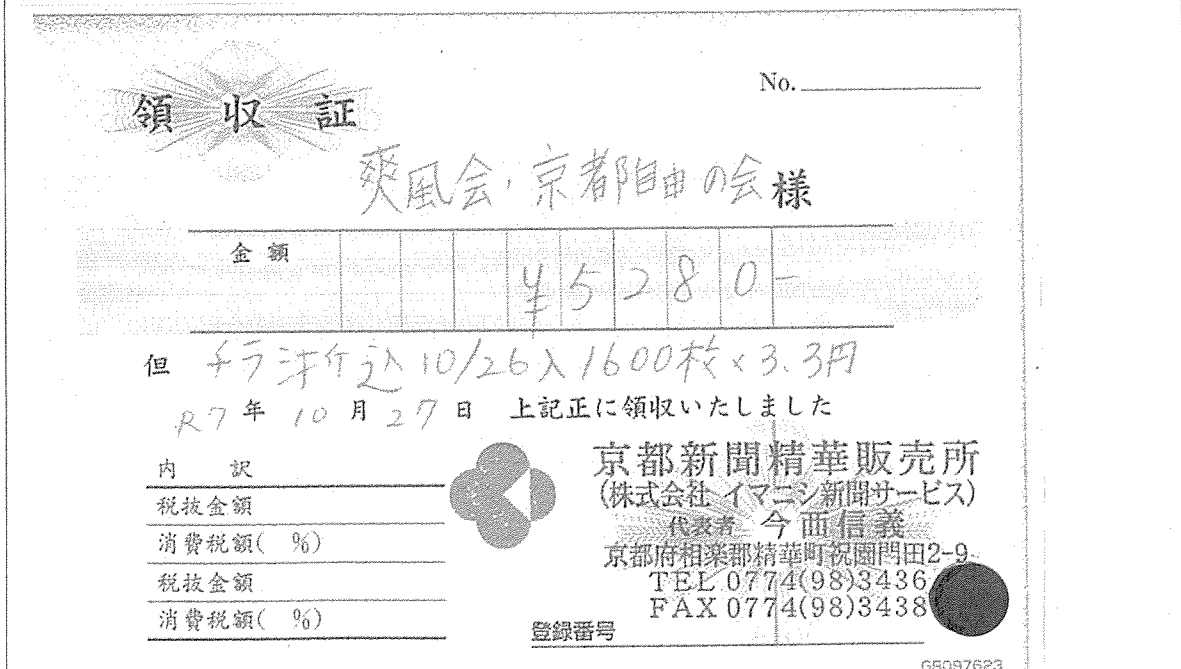 領収証
No.
爽風会・京都自由の会様
金額
¥5280-
但 チラシ折込 10/26入 1600枚×3.3円
R7年10月27日 上記正に領収いたしました
内訳
税抜金額
消費税額( %)
税抜金額
消費税額( %)
京都新聞精華販売所
(株式会社 イマニシ新聞サービス)
代表者 今西信義
京都府相楽郡精華町祝園門田2-9
TEL 0774(98)3436
FAX 0774(98)3438
登録番号
G8097623